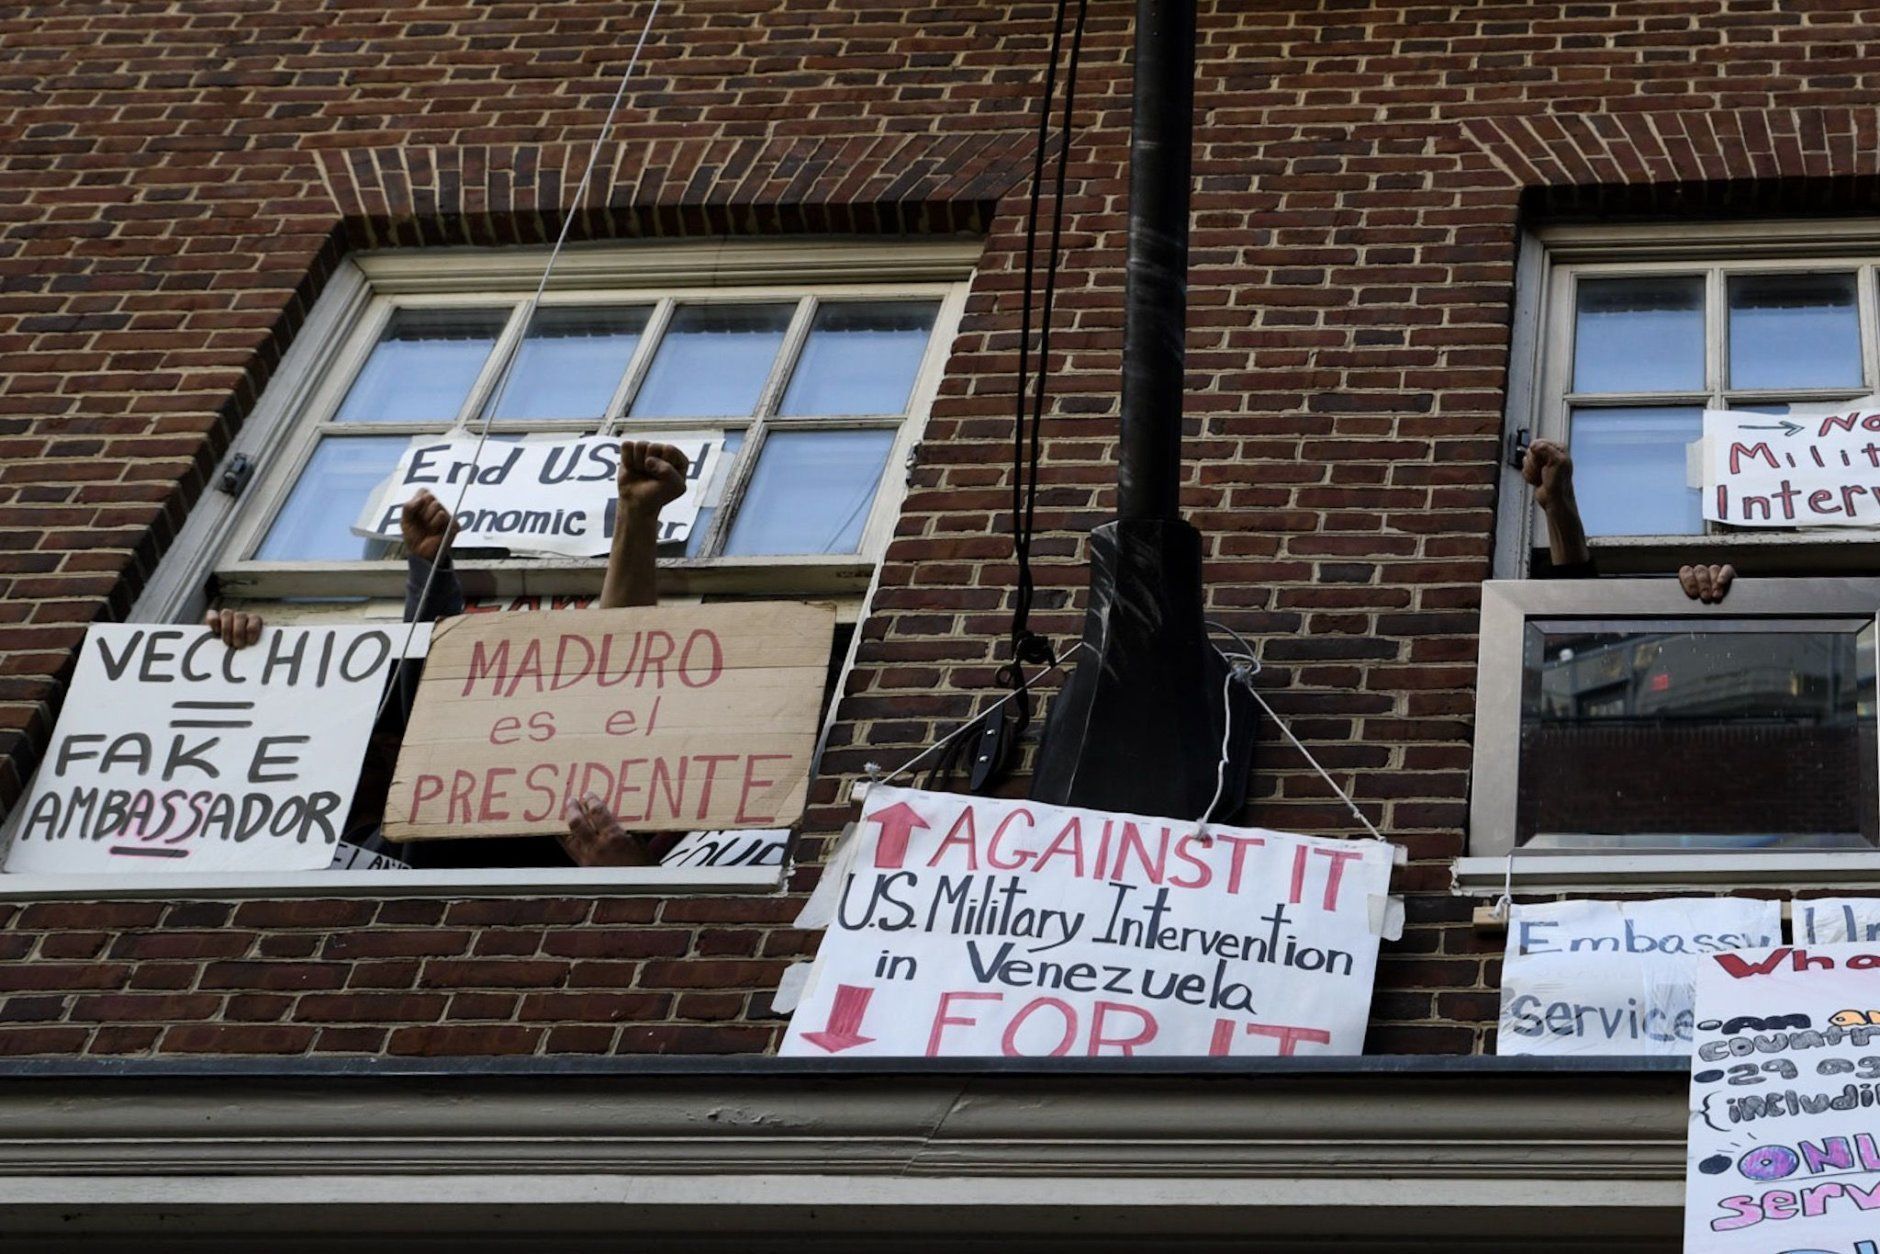 End U.S.
onomic
VECCHIO
=
FAKE
AMBASSADOR
MADURO
es el
PRESIDENTE
AGAINST IT
U.S. Military Intervention
in Venezuela
FOR IT
→ No
Milit
Interv
Embassy
service
Wha
Am
countr
29 ag
(includi
ONL
serv